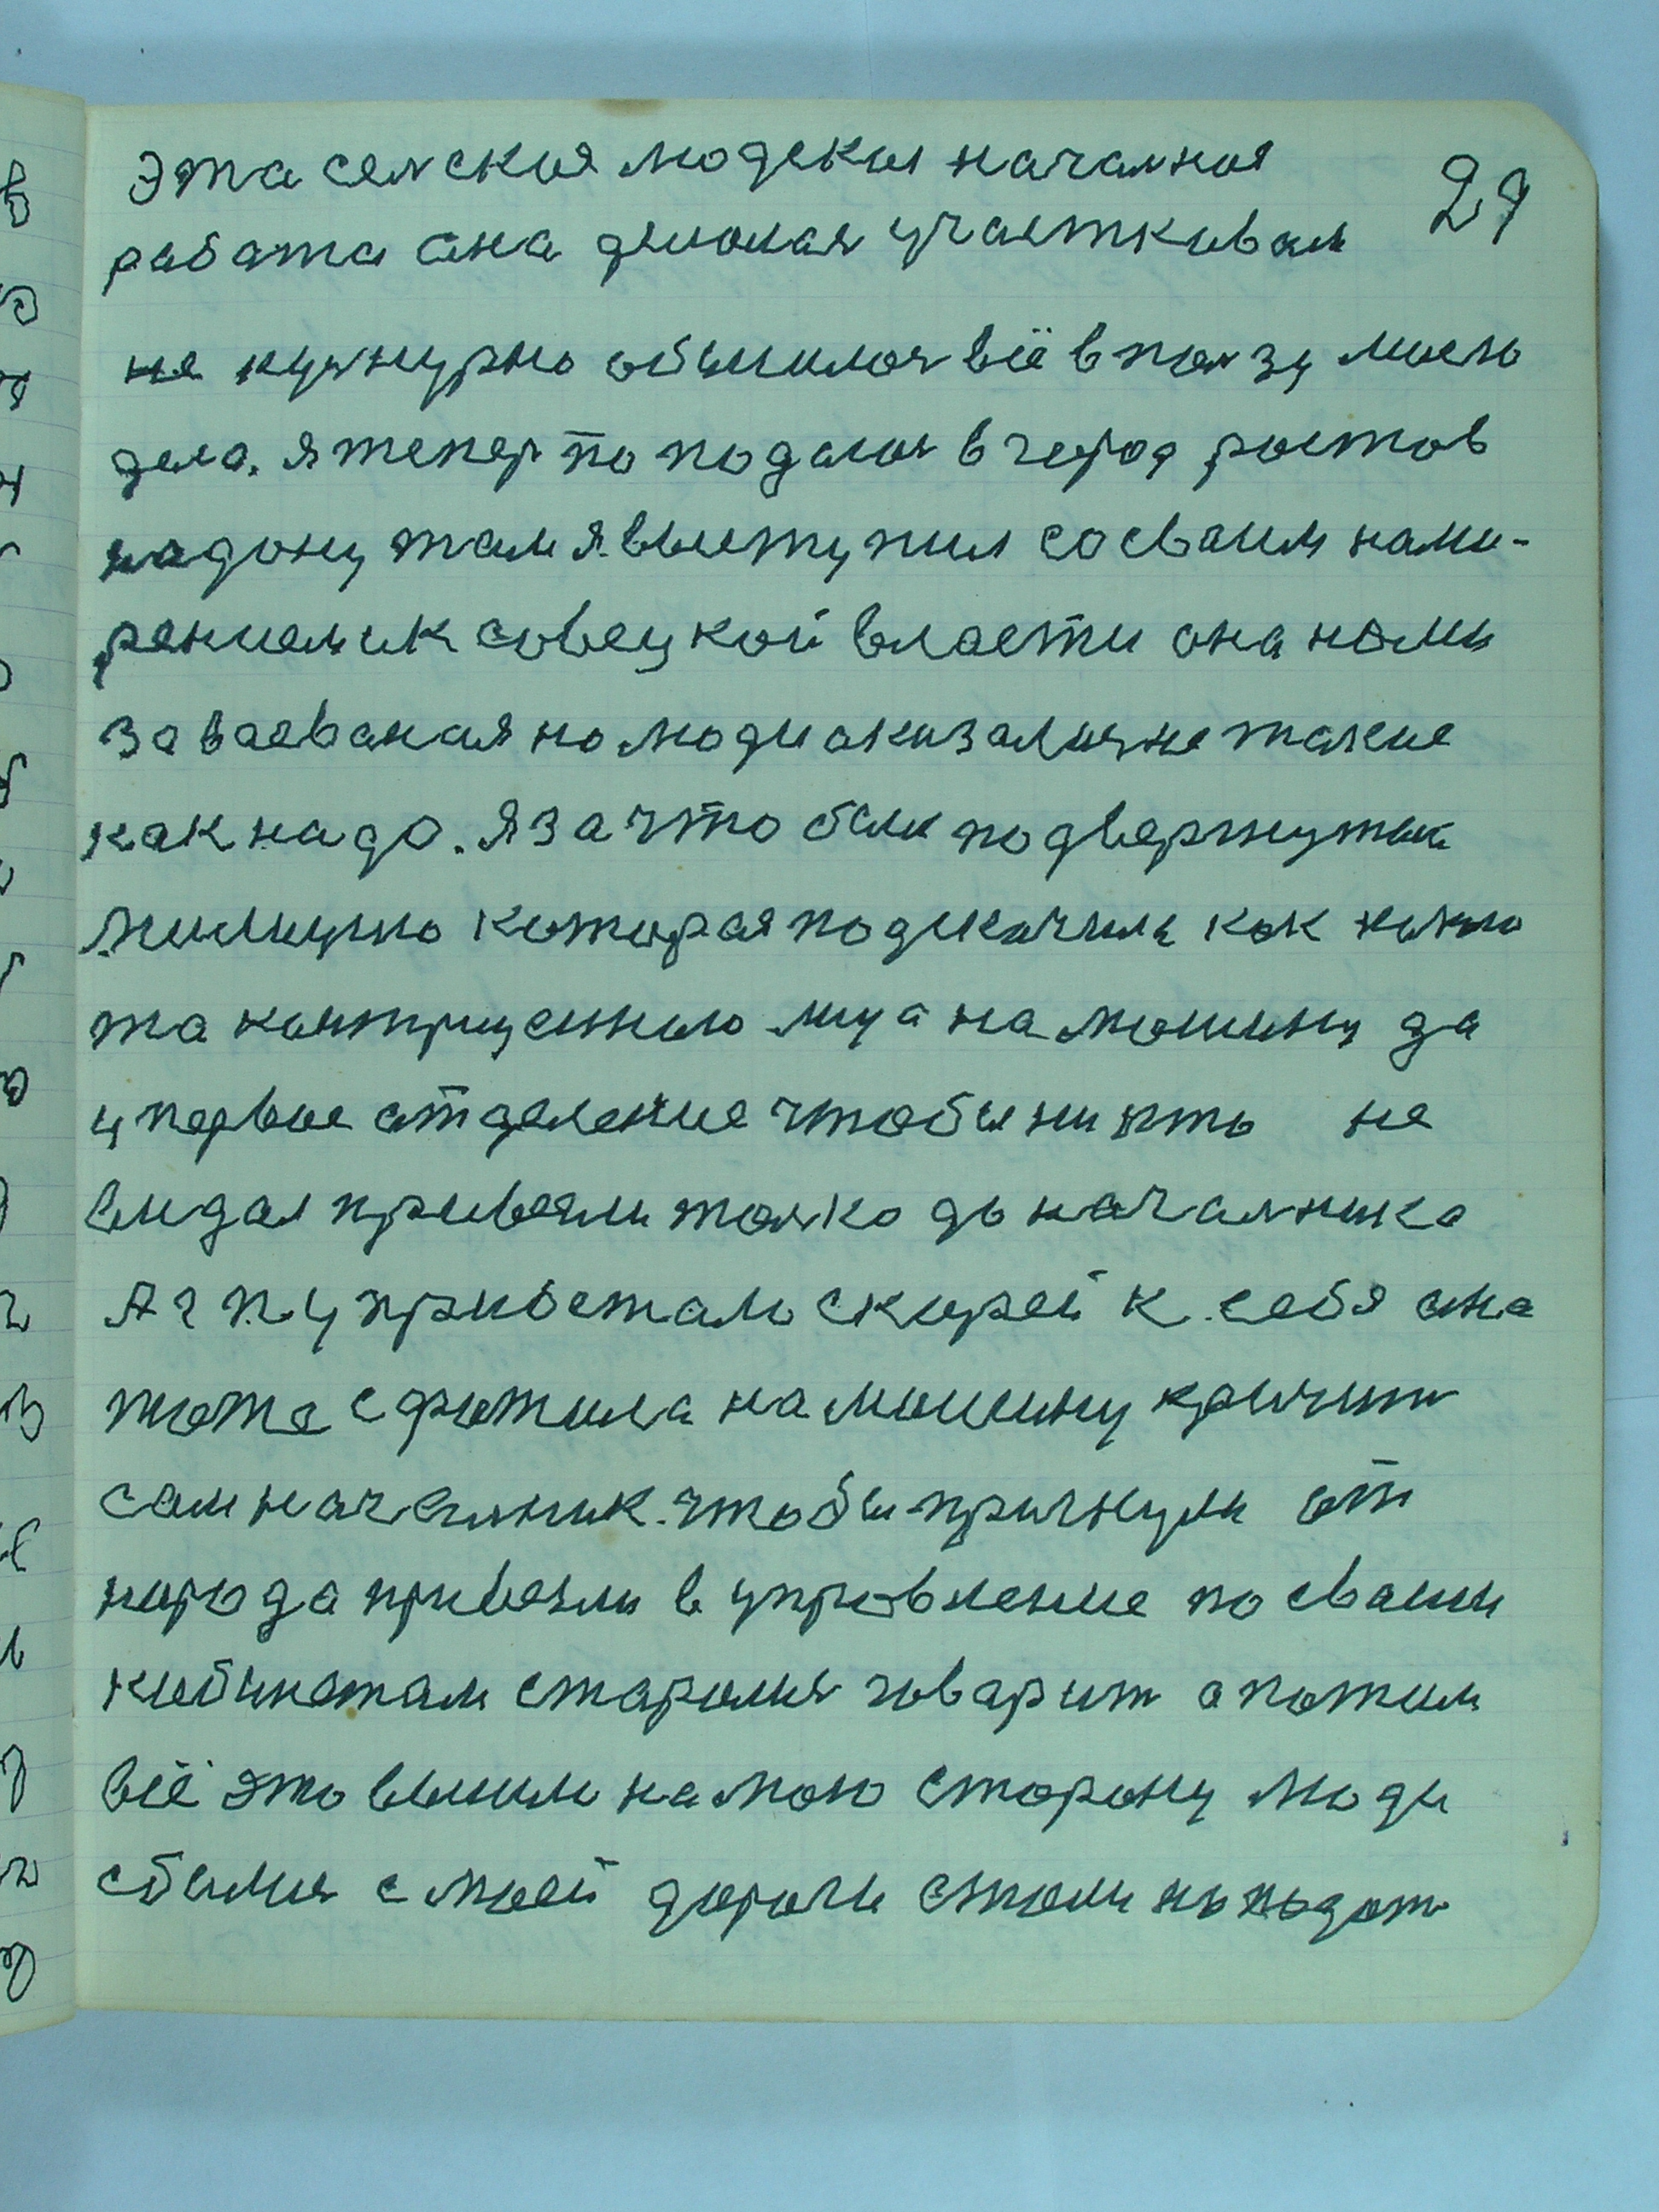 29
эта сялская людская началная
работа она дикоя участкавам
не культурно обышлося всё в ползу моево
дела. я тепер то подался в город ростов
надону там я выступил со сваим нами-
рением ик совецкой власти она нами
заваеваная но люди оказалися не такие
как надо. я за что был подвержутык
милицию которая подскачила как
та контрицению муа на машину да
у первое отделение чтобы ни хто не
видал привезли толко до началника
А г п у приостало скорей к себя она
тоже сфотила на машину кричит
сам началник. чтобы пригнули от
народа привезли в управление по сваим
кабинетам старалися говарит а потим
всё это вышло на мою сторону люди
сбылися с моей дороги стали